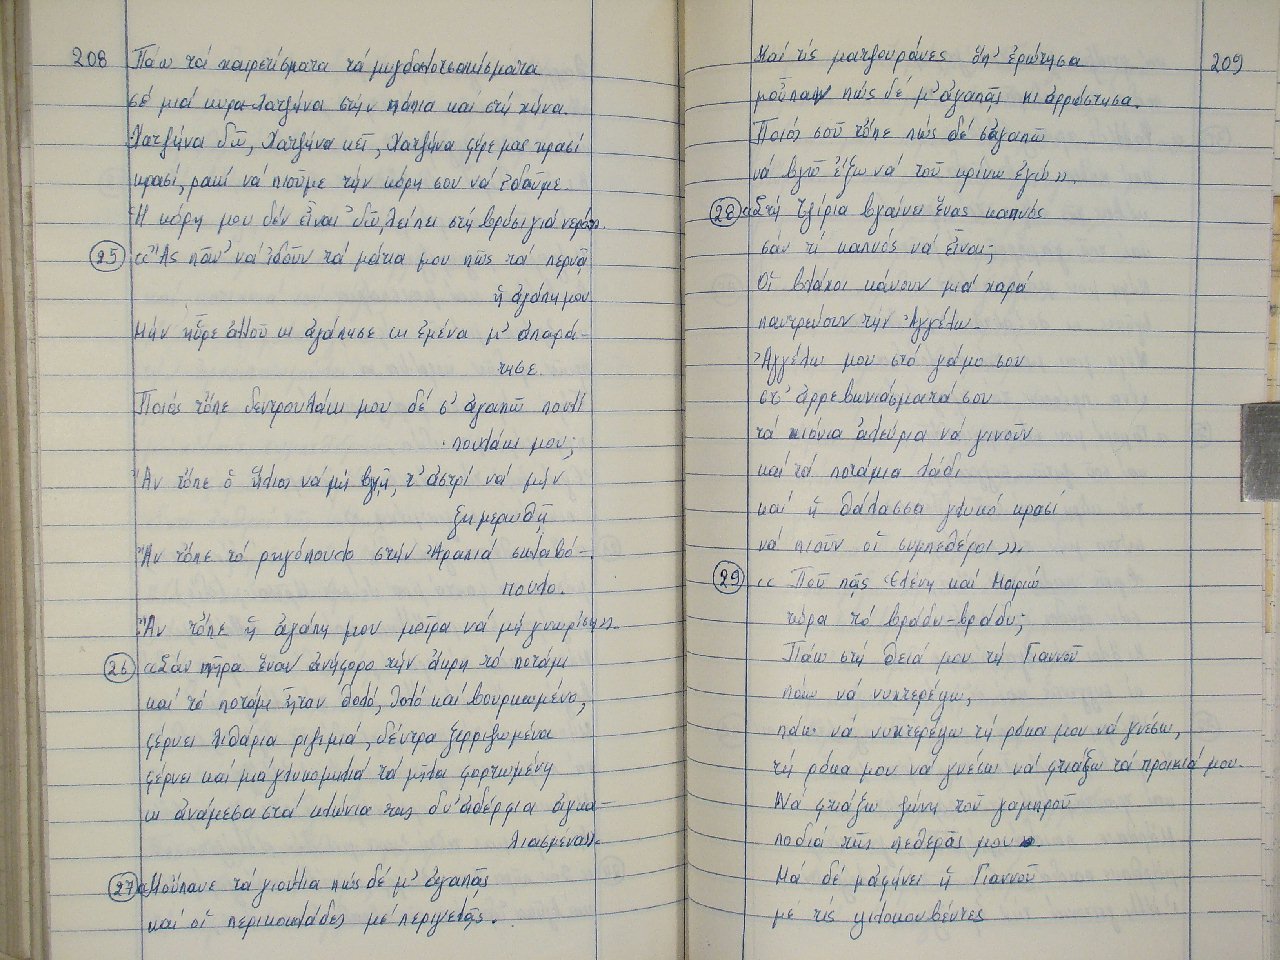 208
Πάω τά χαιρετίσματα τά μυγδαλοτσακίσματα
σέ μιά κυρα-Χατζήνα στήν πάπια καί στή χήνα.
Χατζήνα δῶ, Χατζήνα κεῖ, Χατζήνα φέρε μας κρασί
κρασί, ρακί νά πιοῦμε τήν κόρη σου νά ἰδοῦμε.
Ἡ κόρη μου δέν εἶναι ἐδῶ, λείπει στή βρύσι γιά νερό».
25 «Ἄς πᾶν' νά ἰδοῦν τά μάτια μου πῶς τά περνᾷ
ἡ ἀγάπη μου
Μήν ηὗρε ἀλλοῦ κι ἀγάπησε κι ἐμένα μ' ἀπαρά-
τησε.
Ποιός τὄπε δεντρουλάκι μου δέ σ' ἀγαπῶ πουλί
πουλάκι μου;
Ἄν τὄπε ὁ ἥλιος νά μή βγῇ, τ' ἀστρί νά μήν
ξημερωθῇ
Ἄν τὄπε τό ρηγόπουλο στήν Ἀραπιά σκλαβό-
πουλο.
Ἄν τὄπε ἡ ἀγάπη μου μοῖρα νά μή γνωρίσῃ».
26 «Σάν πῆρα ἕναν ἀνήφορο τήν ἄκρη τό ποτάμι
καί τό ποτάμι ἦταν θολό, θολό καί βουρκωμένο,
φέρνει λιθάρια ριζιμιά, δέντρα ξερριζωμένα
φέρνει καί μιά γλυκομηλιά τά μῆλα φορτωμένη
κι ἀνάμεσα στά κλώνια της δυ' ἀδέρφια ἀγκα-
λιασμένα».
27 «Μοὔπανε τά γιούλια πώς δέ μ' ἀγαπᾷς
καί οἱ περικοκλάδες μέ περιγελᾷς.
209
Καί τίς ματζουράνες ἐρώτησα
μοὖπαν πώς δέ μ' ἀγαπᾷς κι ἀρρώστησα.
Ποιός σοῦ τὄπε πώς δέ σ' ἀγαπῶ
νά βγῶ ἔξω νά τοῦ κρίνω ἐγώ».
28 «Στή Τζίρια βγαίνει ἕνας καπνός
σάν τί καπνός νά εἶναι;
Οἱ βλάχοι κάνουν μιά χαρά
παντρεύουν τήν Ἀγγέλω.
Ἀγγέλω μου στό γάμο σου
στ' ἀρρεβωνιάσματά σου
τά χιόνια ἀλεύρια νά γινοῦν
καί τά ποτάμια λάδι
καί ἡ θάλασσα γλυκό κρασί
νά πιοῦν οἱ συμπεθέροι».
29 «Ποῦ πᾷς Ἑλένη καί Μαριώ
τώρα τό βράδυ-βράδυ;
Πάω στή θειά μου τή Γιαννοῦ
πάω νά νυχτερέψω,
πάω νά νυχτερέψω τή ρόκα μου νά γνέσω,
τή ρόκα μου νά γνέσω νά φτιάξω τά προικιά μου.
Νά φτιάξω ζώνη τοῦ γαμπροῦ
ποδιά τῆς πεθερᾶς μου».
Μά δέ μ' ἀφήνει ἡ Γιαννοῦ
μέ τίς ψιλοκουβέντες